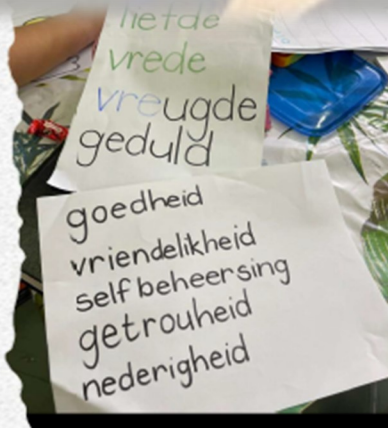 liefde
vrede
vreugde
geduld
goedheid
vriendelikheid
selfbeheersing
getrouheid
nederigheid